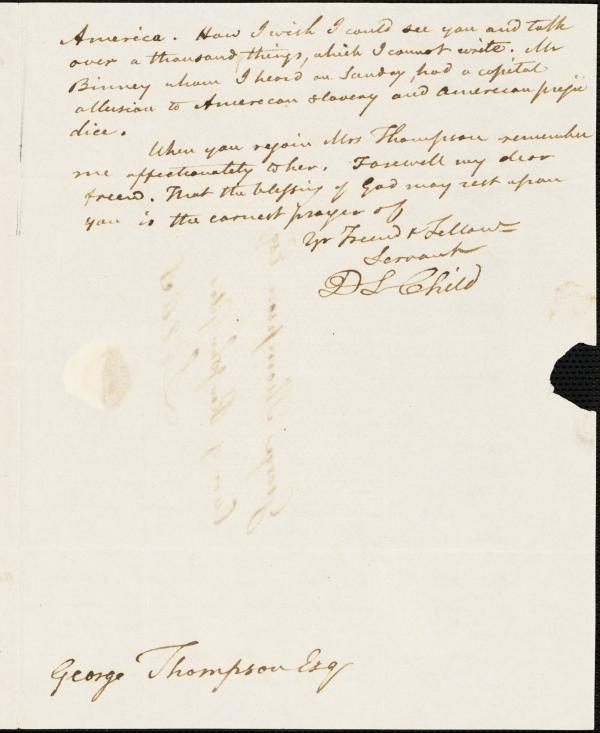 America. How I wish I could see you and talk
over a thousand things, which I cannot write. Mr
Binney whom I heard on Sunday, had a capital
allusion to American slavery and American preju
dice.
When you rejoin Mrs Thompson remember
me affectionately to her. Farewell my dear
friend. That the blessing of God may rest upon
you is the earnest prayer of
Yr Friend & Fellow-
Servant
D L Child
George Thompson Esq